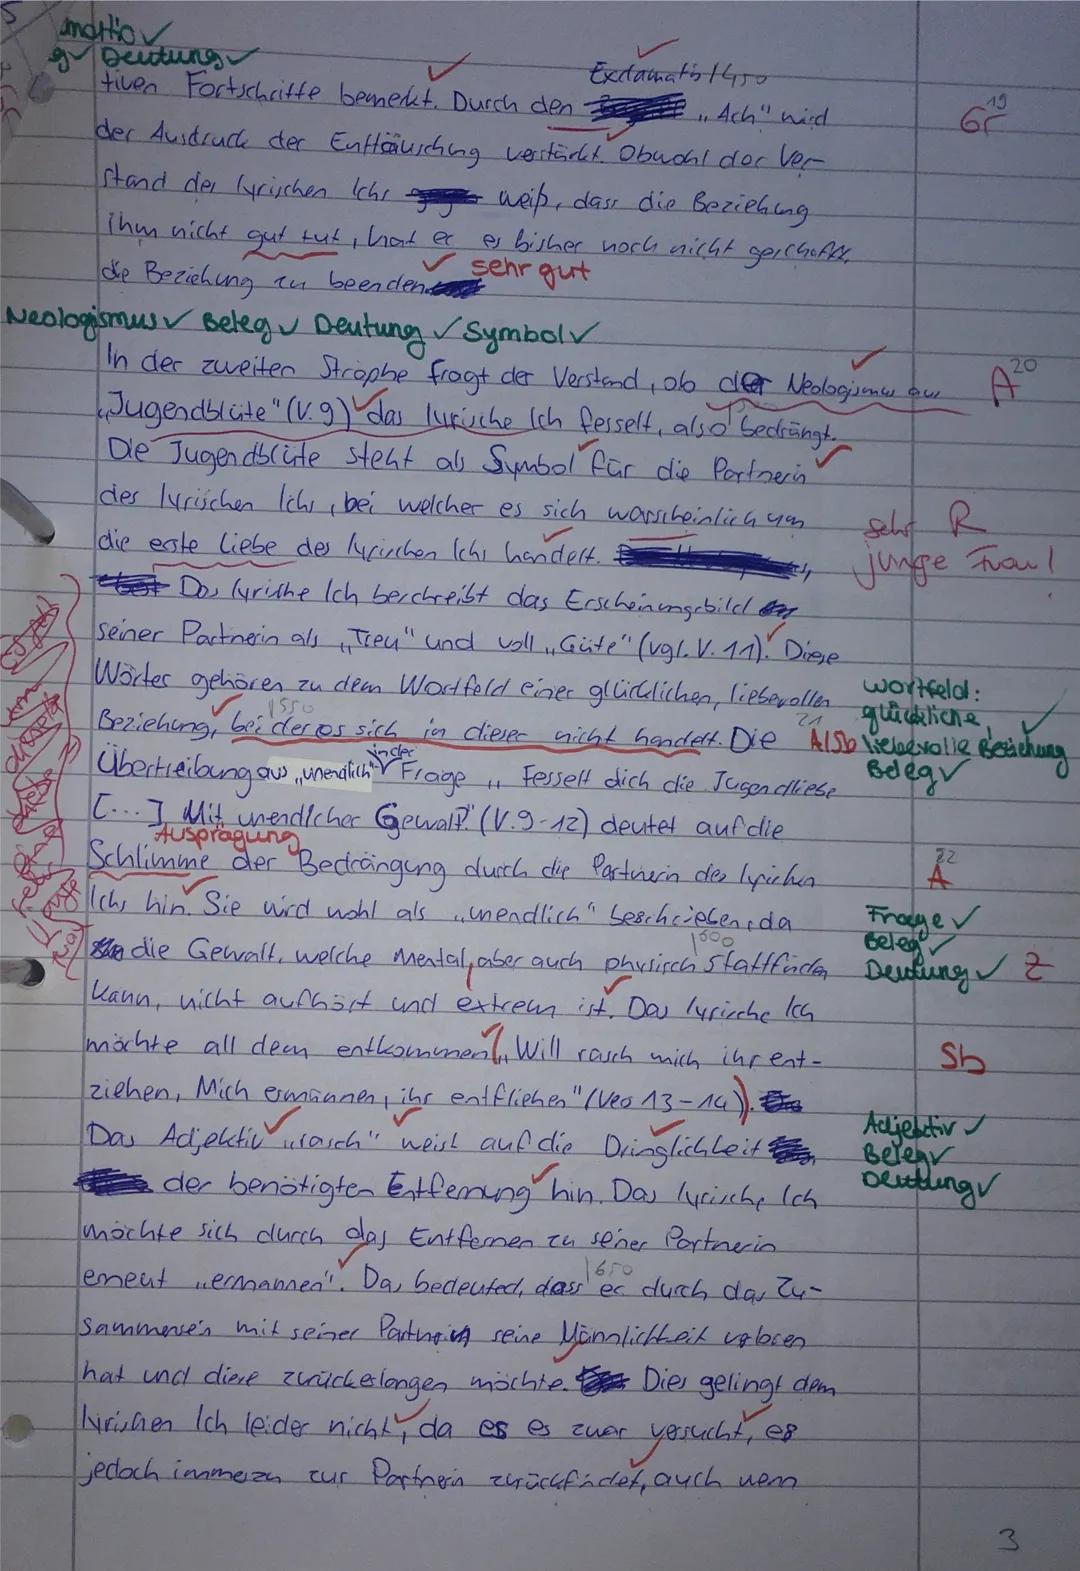 matio ✓
g ✓ Deutung ✓
Exclamatio 1450
tiven Fortschritte bemerkt. Durch den „Ach" wird
Gr 19
der Ausdruck der Enttäuschung verstärkt. Obwohl der Ver-
stand des lyrischen Ichs weiß, dass die Beziehung
ihm nicht gut tut, hat er es bisher noch nicht geschafft,
die Beziehung zu beenden. sehr gut
Neologismus ✓ Beleg ✓ Deutung ✓ Symbol ✓
In der zweiten Strophe fragt der Verstand, ob der Neologismus aus
A 20
„Jugendblüte" (V. 9) das lyrische Ich fesselt, also bedrängt.
Die Jugendblüte steht als Symbol für die Partnerin
des lyrischen Ichs, bei welcher es sich warscheinlich um
sehr R
die erste Liebe des lyrischen Ichs handelt.
junge Frau!
Das lyrische Ich berschreibt das Erscheinungsbild
seiner Partnerin als „Treu" und voll „Güte" (vgl. V. 11). Diese
Wörter gehören zu dem Wortfeld einer glücklichen, liebevollen
Wortfeld:
glückliche, ✓
1550
Beziehung, bei der es sich in dieser nicht handelt. Die
21
A/Sb liebevolle Beziehung
Beleg ✓
in der
Übertreibung aus „unendlich" Frage „Fesselt dich die Jugendliebe
[...] Mit unendlicher Gewalt?" (V. 9-12) deutet auf die
Ausprägung
Schlimme der Bedrängung durch die Partnerin des lyrichen
22
A
Ichs hin. Sie wird wohl als „unendlich" beschrieben, da
Frage ✓
Beleg ✓
1600
die Gewalt, welche Mental, aber auch physisch stattfinden
Deutung ✓ Z
kann, nicht aufhört und extrem ist. Das lyrische Ich
möchte all dem entkommen („Will rasch mich ihr ent-
Sb
ziehen, Mich ermannen, ihr entfliehen" (Vers 13-14)).
Das Adjektiv „rasch" weist auf die Dringlichkeit
Adjektiv ✓
Beleg ✓
Deuttung ✓
der benötigten Entfernung hin. Das lyrische Ich
möchte sich durch das Entfernen zu seiner Partnerin
erneut „ermannen". Das bedeuted, dass er durch das Zu-
1650
sammensein mit seiner Partnerin seine Männlichkeit verloren
hat und diese zurückerlangen möchte. Dies gelingt dem
lyrischen Ich leider nicht, da es es zwar versucht, es
jedoch immerzu zur Partnerin zurückfindet, auch wenn
3